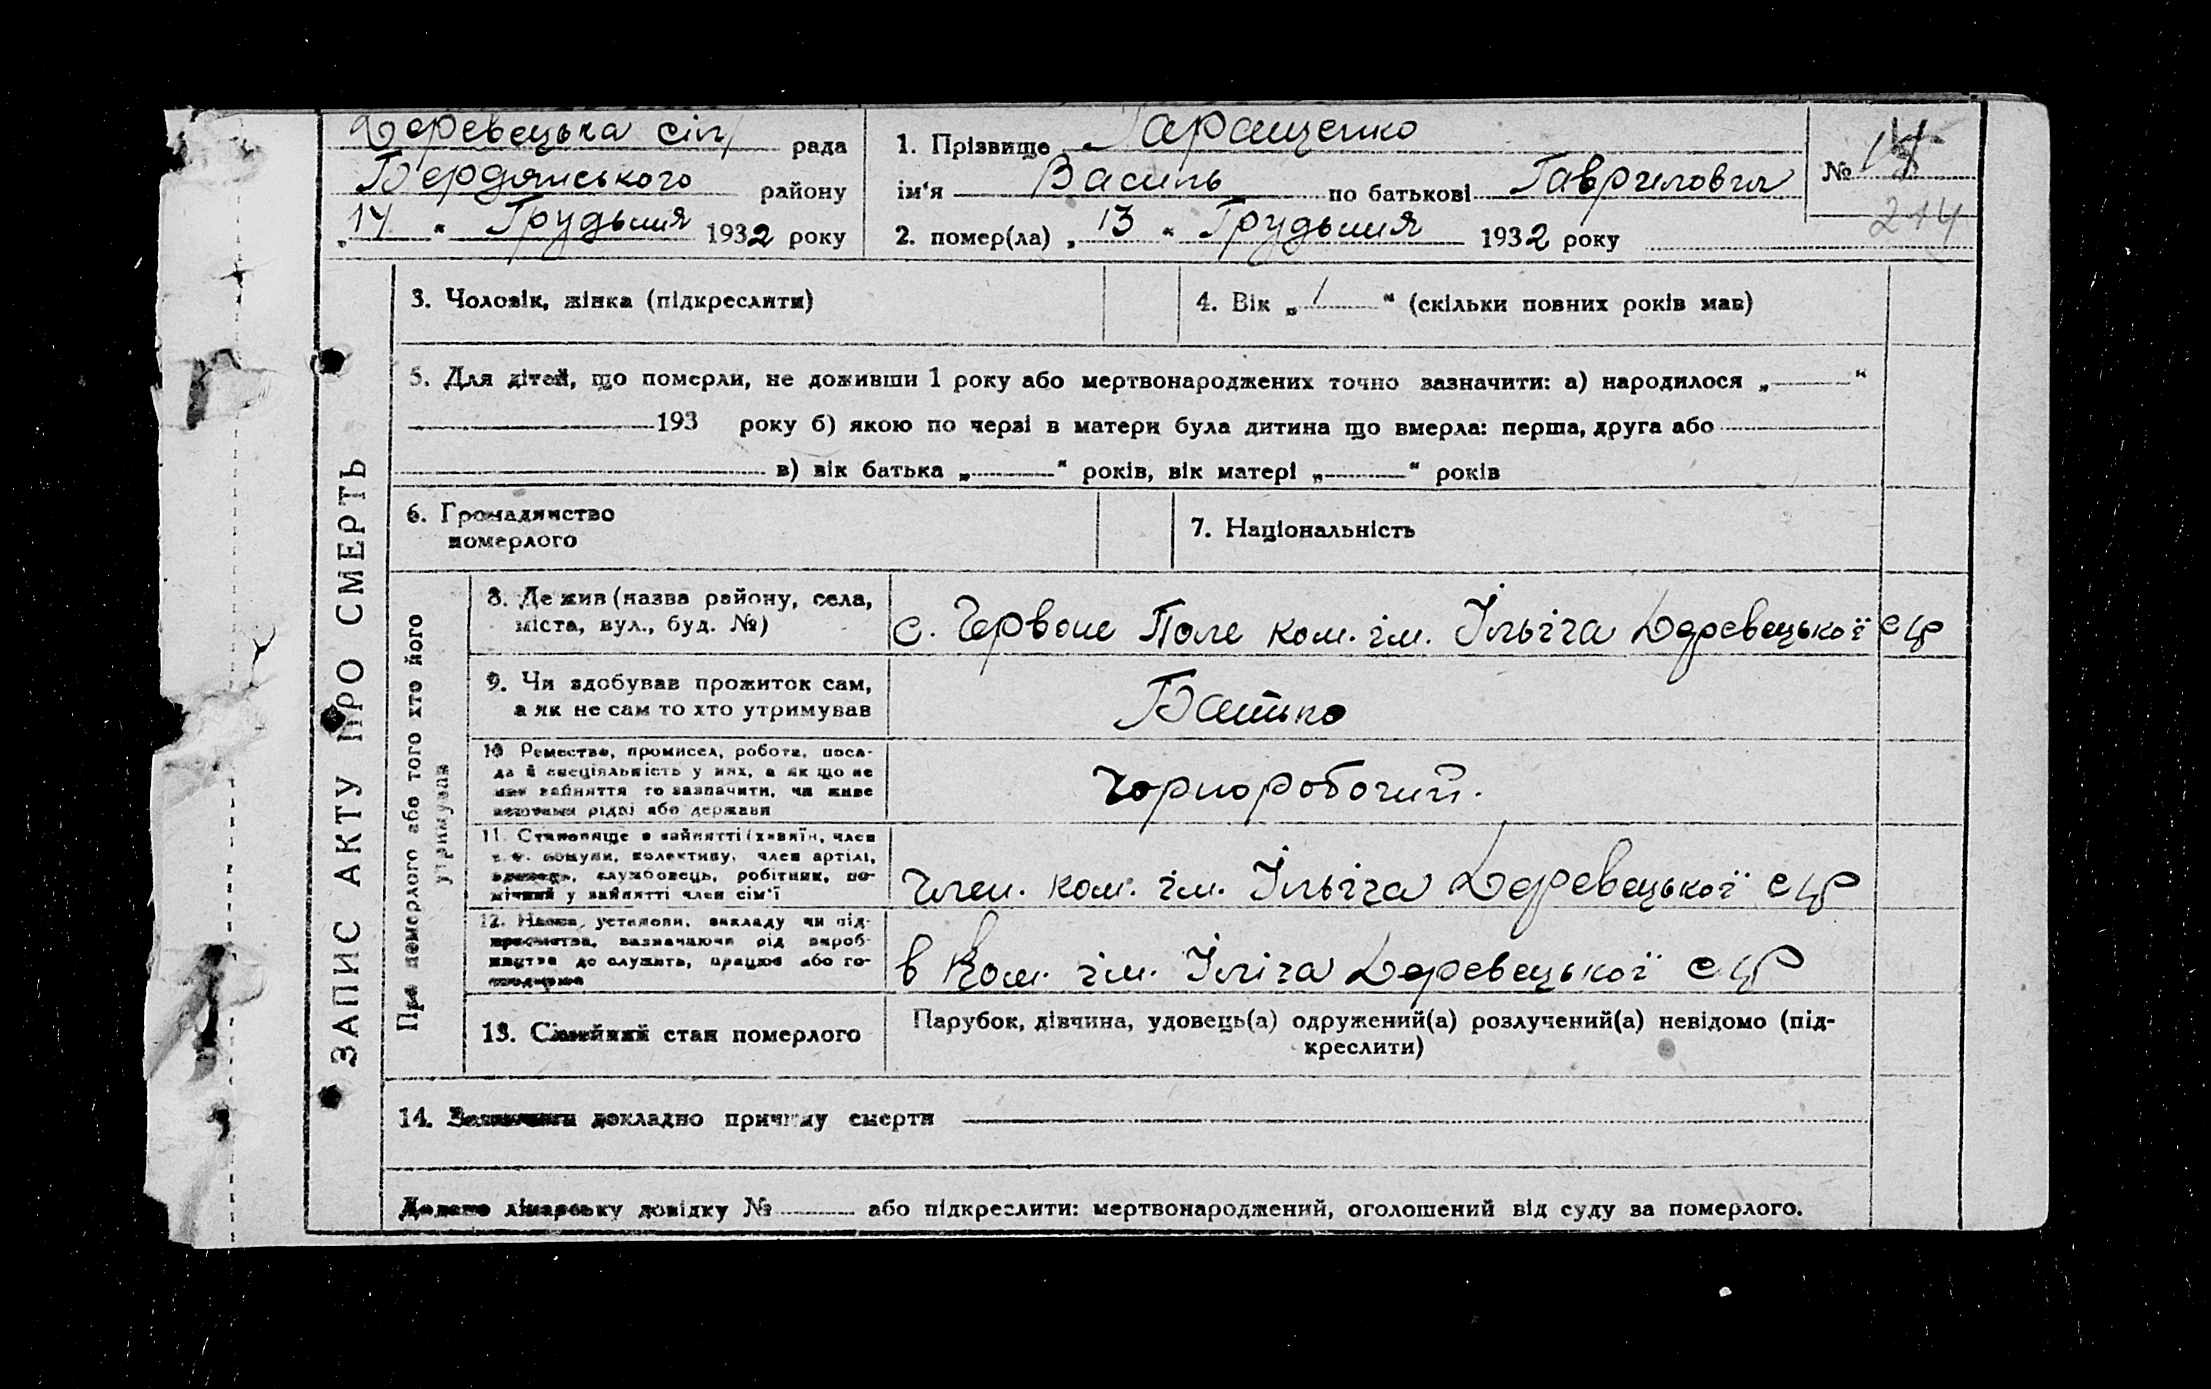 Деревецька сіл/ рада
Бердянського району
„14“ Грудьния 1932 року
1. Прізвище Гаращенко
ім'я Василь по батькові Гаврилович
2. помер(ла) „13“ Грудьния 1932 року
№
214
ЗАПИС АКТУ ПРО СМЕРТЬ
3. Чоловік, жінка (підкреслити)
4. Вік „1“ (скільки повних років мав)
5. Для дітей, що померли, не доживши 1 року або мертвонароджених точно зазначити: а) народилося „ “
193 року б) якою по черзі в матери була дитина що вмерла: перша, друга або
в) вік батька „ “ років, вік матері „ “ років
6. Громадянство
померлого
7. Національність
Про померлого або того хто його
утримував
8. Де жив (назва району, села,
міста, вул., буд. №)
с. Червоне Поле ком. ім. Ільіча Деревецької с/р
9. Чи здобував прожиток сам,
а як не сам то хто утримував
Батько
10 Ремество, промисел, робота, поса-
да й спеціяльність у них, а як що не
мав зайняття то зазначити, чи живе
коштами рідні або держави
Чорноробочий.
11. Становище в зайнятті (хазяїн, член
комуни, колективу, член артілі,
службовець, робітник, по-
мічний у зайнятті член сім'ї
член. ком. ім. Ільіча Деревецької с/р
12. Назва, установи, закладу чи під-
приємства, зазначаючи рід вироб-
ництва де служить, працює або го-
сподарює
в Ком. ім. Іліча Деревецької с/р
13. Сімейний стан померлого
Парубок, дівчина, удовець(а) одружений(а) розлучений(а) невідомо (під-
креслити)
14. Зазначити докладно причину смерти
Додано лікарську довідку № або підкреслити: мертвонароджений, оголошений від суду за померлого.